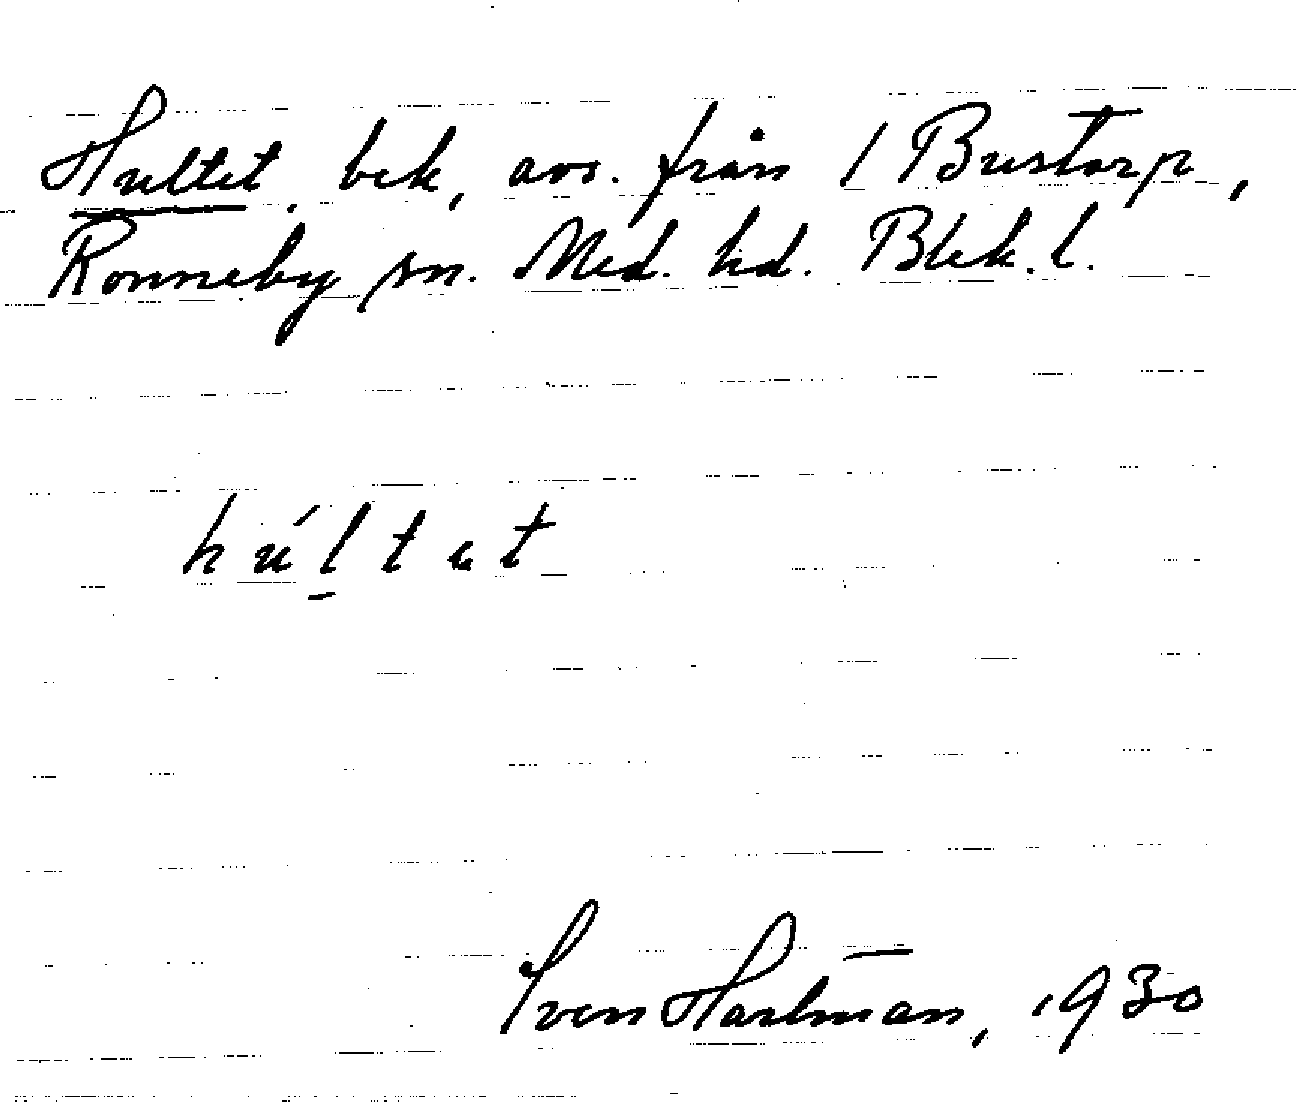 Hultet, bek, avs. från 1 Bustorp,
Ronneby sn. Med. hd. Blek. l.
húltet
Sven Hartman, 1930